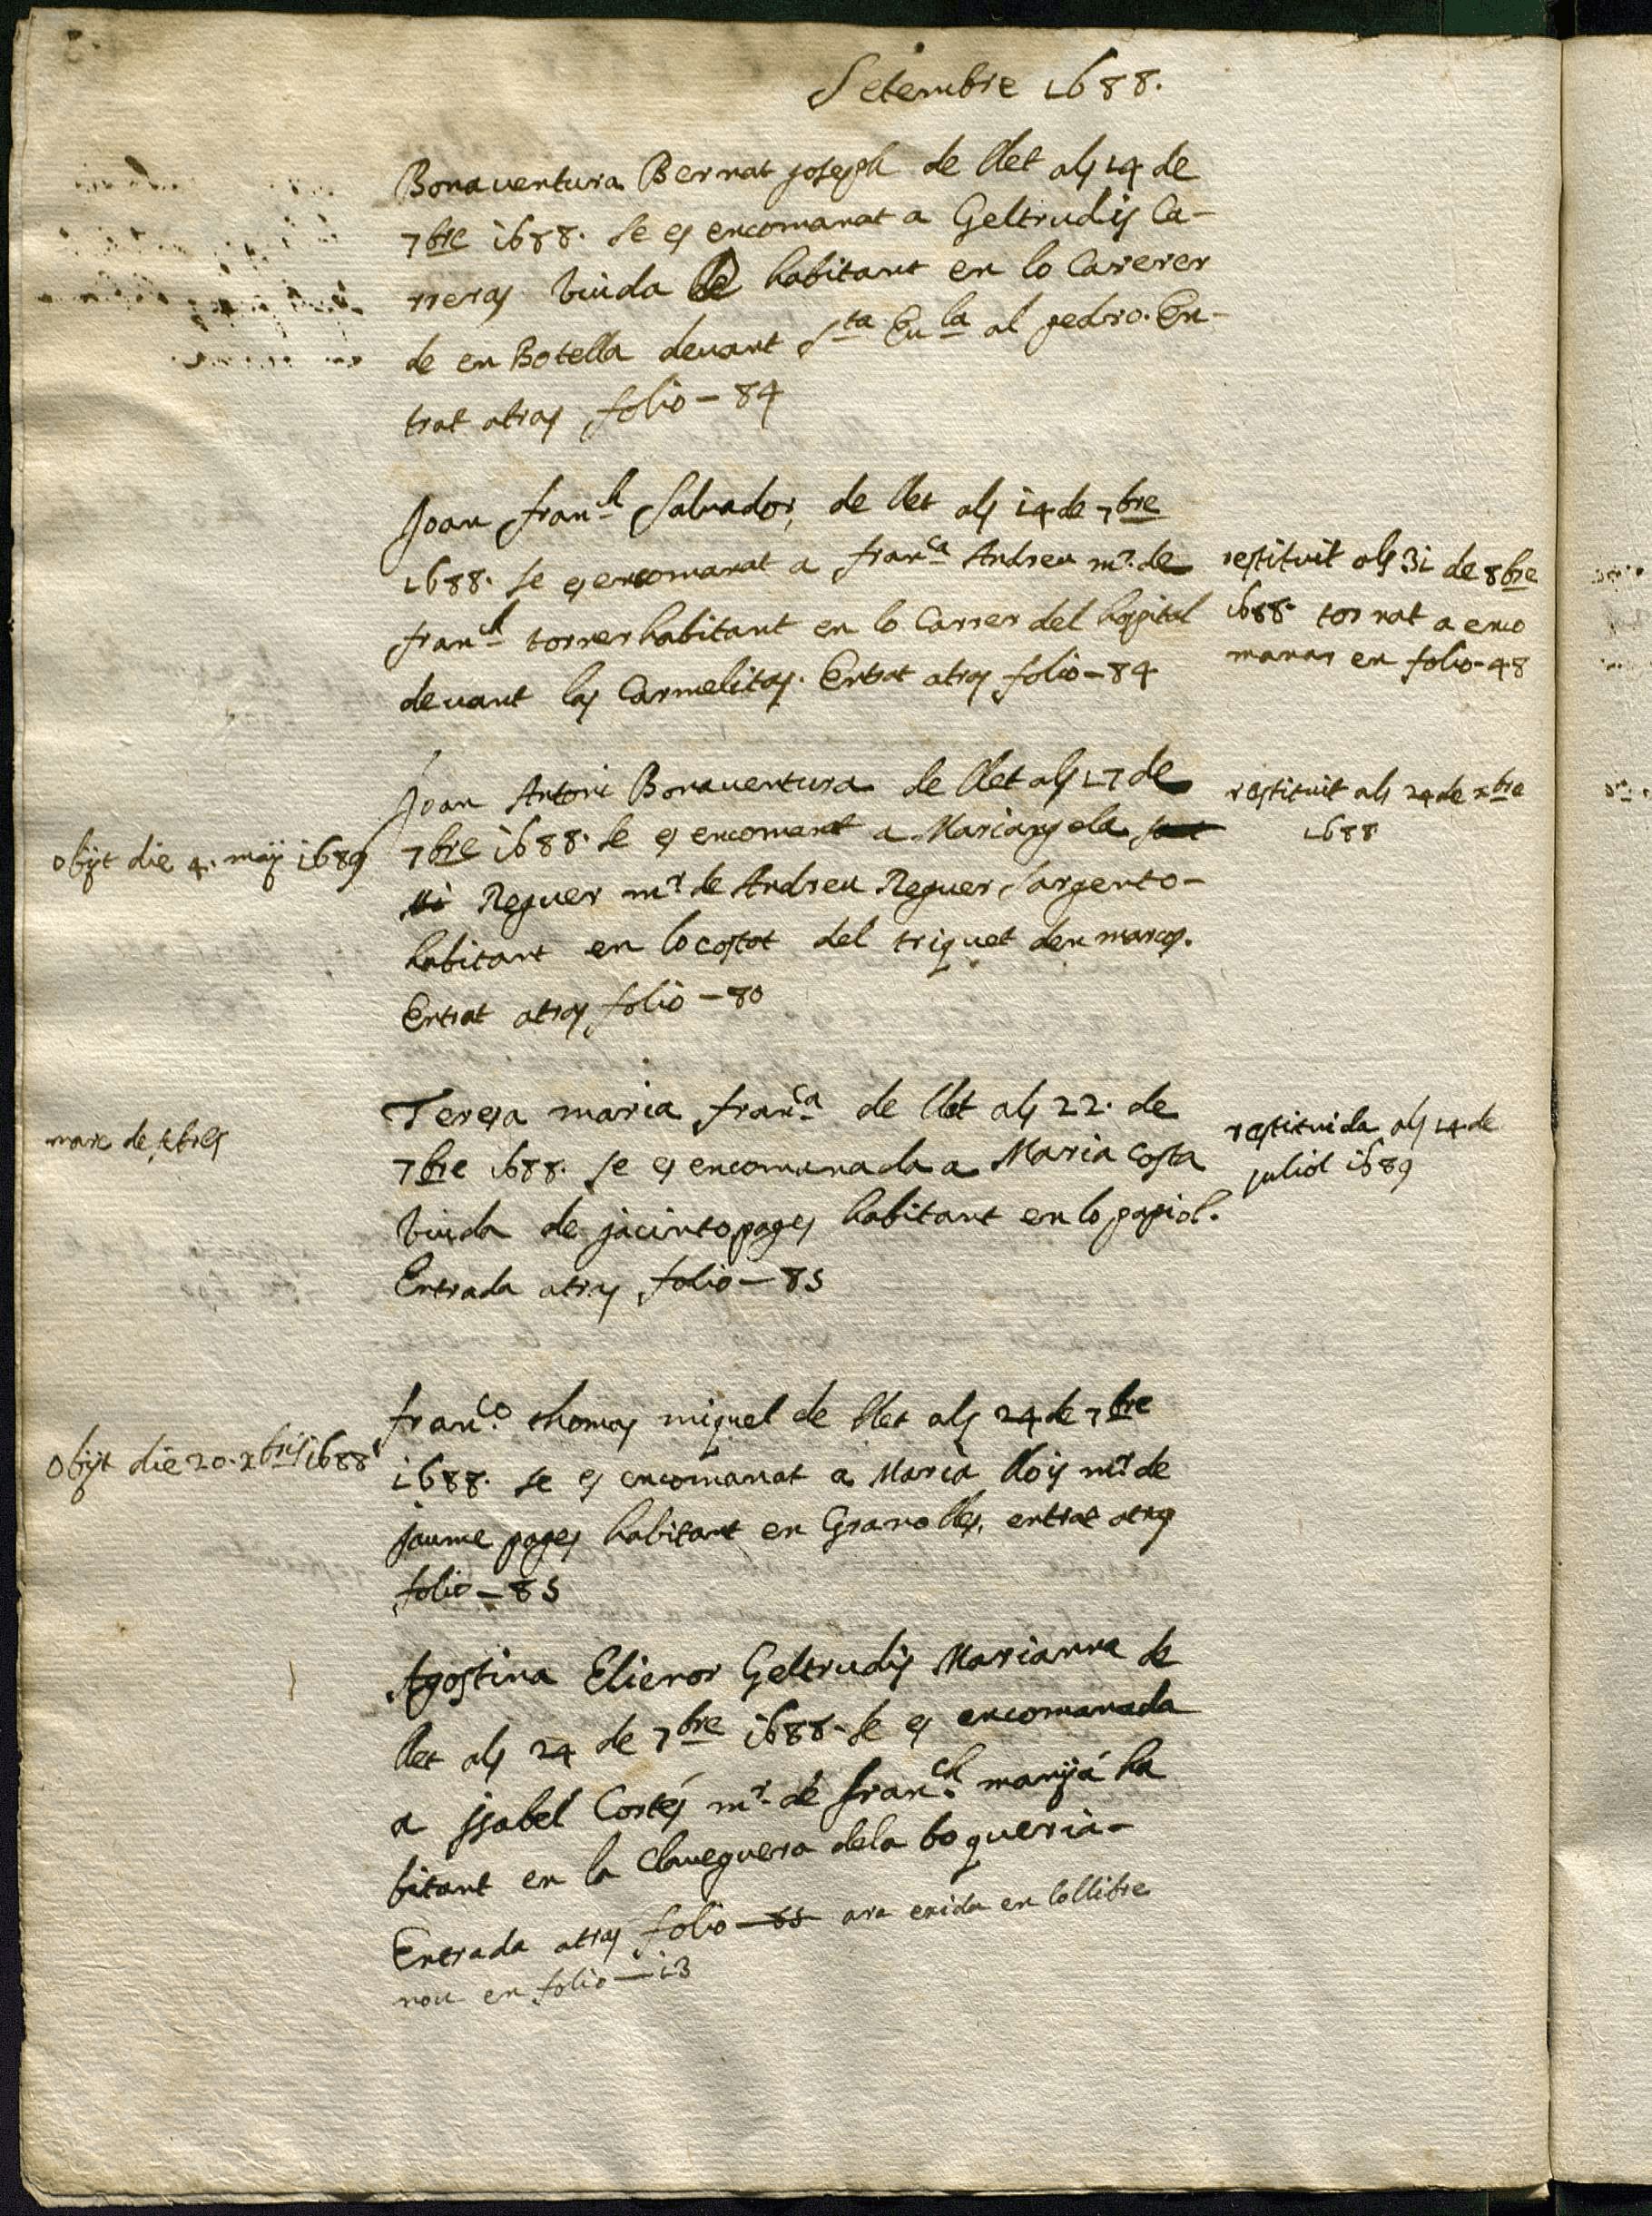 Setembre 1688.
Bonaventura Bernat joseph de llet als 14 de
7bre 1688. se es encomanat a Geltrudis Ca-
rreras viuda habitant en lo Carerer
de en Botella devant Sta Eula al pedro. En-
trat atras folio - 84
Joan franch Salvador, de llet als 14 de 7bre
1688. se es encomanat a franca Andreu mr. de
franch torner habitant en lo Carrer del hospital
devant las Carmelitas. Entrat atras folio - 84
restituit als 31 de 8bre
1688. tornat a enco
manar en folio - 48
Joan Antoni Bonaventura de llet als 17 de
7bre 1688. se es encomanat a Mariangela
Reguer mr de Andreu Reguer Sargento -
habitant en lo costat del triquet den marcos.
Entrat atras folio - 80
obijt die 4. maij 1689
restituit als 24 de xbre
1688
Teresa maria franca de llet als 22. de
7bre 1688. se es encomanada a Maria Costa
viuda de jacinto pages habitant en lo papiol.
Entrada atras folio - 85
marc de
restituida als 14 de
juliol 1689
franco. thomas miquel de llet als 24 de 7bre
1688. se es encomanat a Maria llois mr. de
jaume pages habitant en Granolles, entrat atras
folio - 85
Obijt die 20. xbris 1688
Agostina Elienor Geltrudis Marianna de
llet als 24 de 7bre 1688. se es encomanada
a jsabel Cortés mr. de franch. manyá ha
bitant en la Claveguera dela boqueria -
Entrada atras folio - 85 ara exida en lo llibre
nou en folio - 13